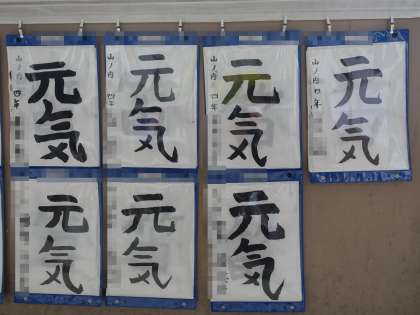 元気
山ノ内 四年
元気
山ノ内 四年
元気
山ノ内 四年
元気
山ノ内 四年
元気
元気
元気